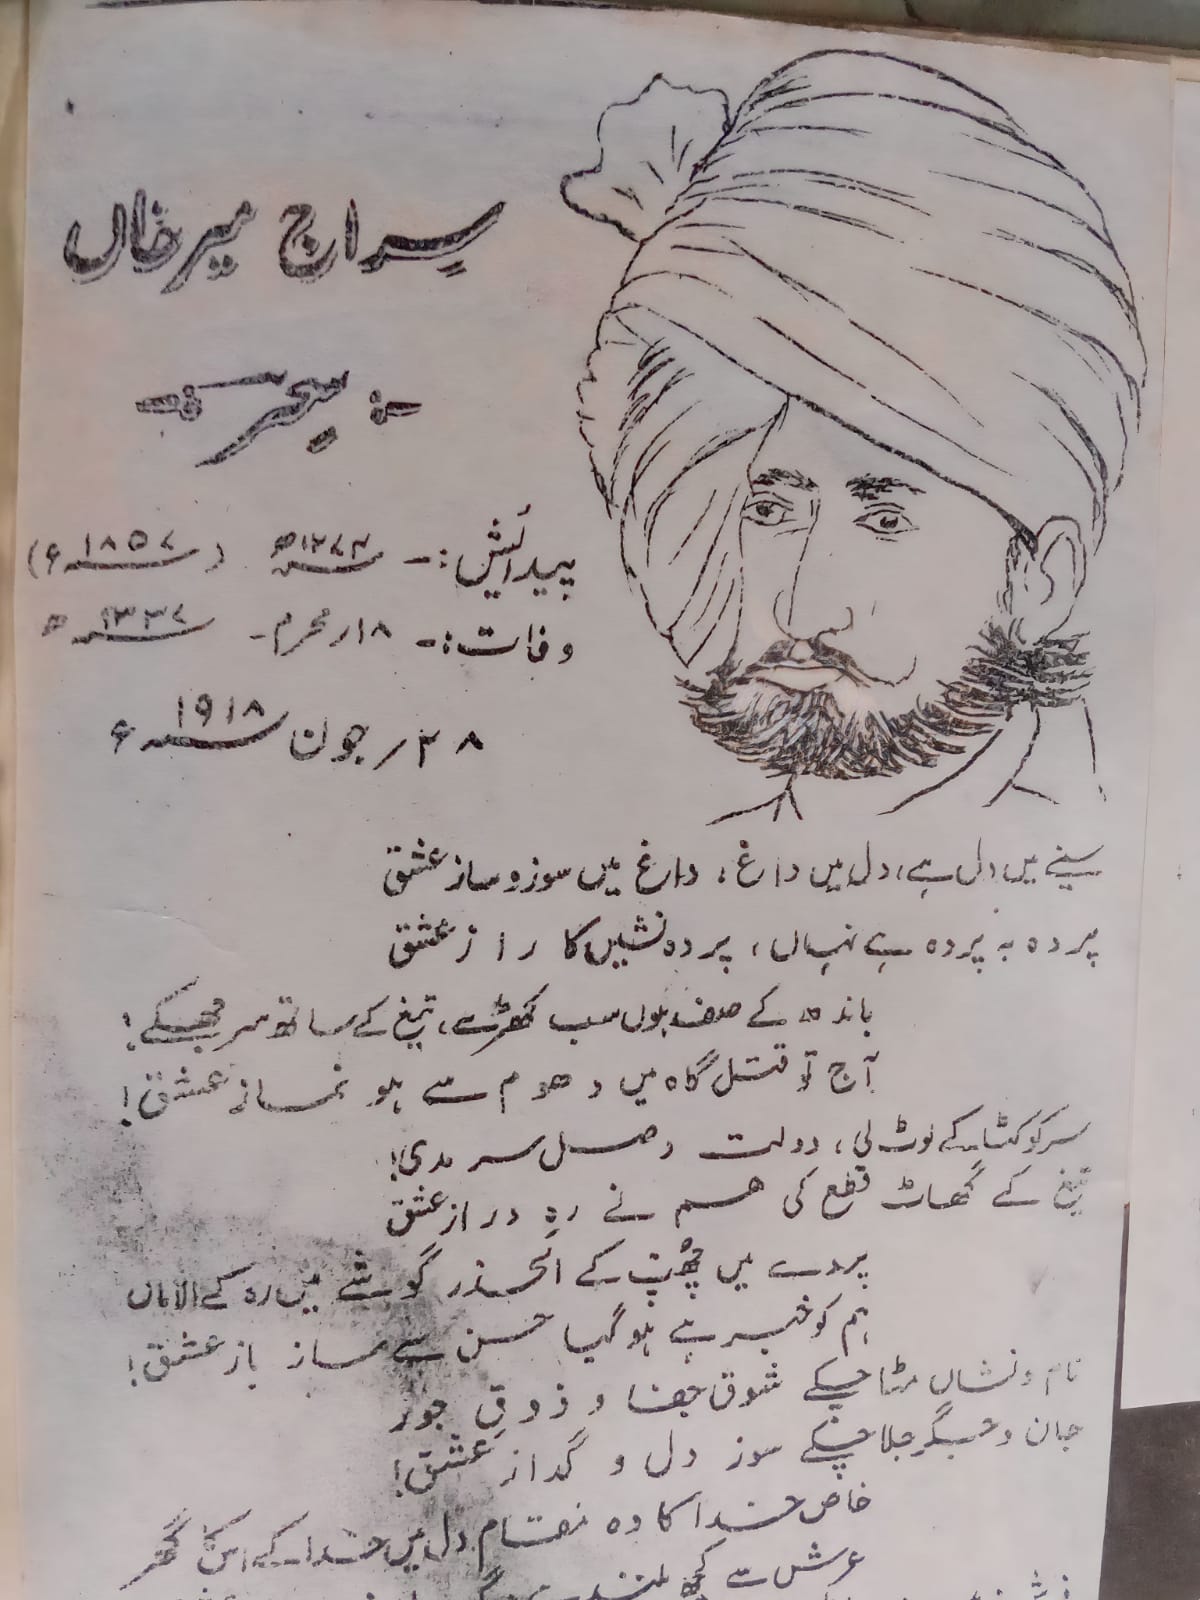 سراج میر خاں
سحر
پیدائش :- سنہ ۱۲۷۳ھ (سنہ ۱۸۵۷ء)
وفات :- ۱۸ر محرم - سنہ ۱۳۳۷ھ
۲۸ر جون سنہ ۱۹۱۸ء
سینے میں دل ہے، دل میں داغ، داغ میں سوز و ساز عشق
پردہ بہ پردہ ہے نہاں، پردہ نشیں کا راز عشق
باندھ کے صف ہوں سب کھڑے، تیغ کے ساتھ سر جھکے!
آج تو قتل گاہ میں دھوم سے ہو نماز عشق!
سر کو کٹا کے لوٹ لی، دولت وصل سرمدی!
تیغ کے گھاٹ قطع کی ہم نے رہِ دراز عشق
پردے میں چھپ کے الحذر گوشے میں رہ کے الاماں
ہم کو خبر ہے ہو گیا حسن سے ساز باز عشق!
نام و نشاں مٹا چکے شوق جفا و ذوقِ جور
جان و جگر جلا چکے سوز دل و گداز عشق!
خاص خدا کا وہ مقام دل میں خدا کے اس کا گھر
عرش سے کچھ بلند